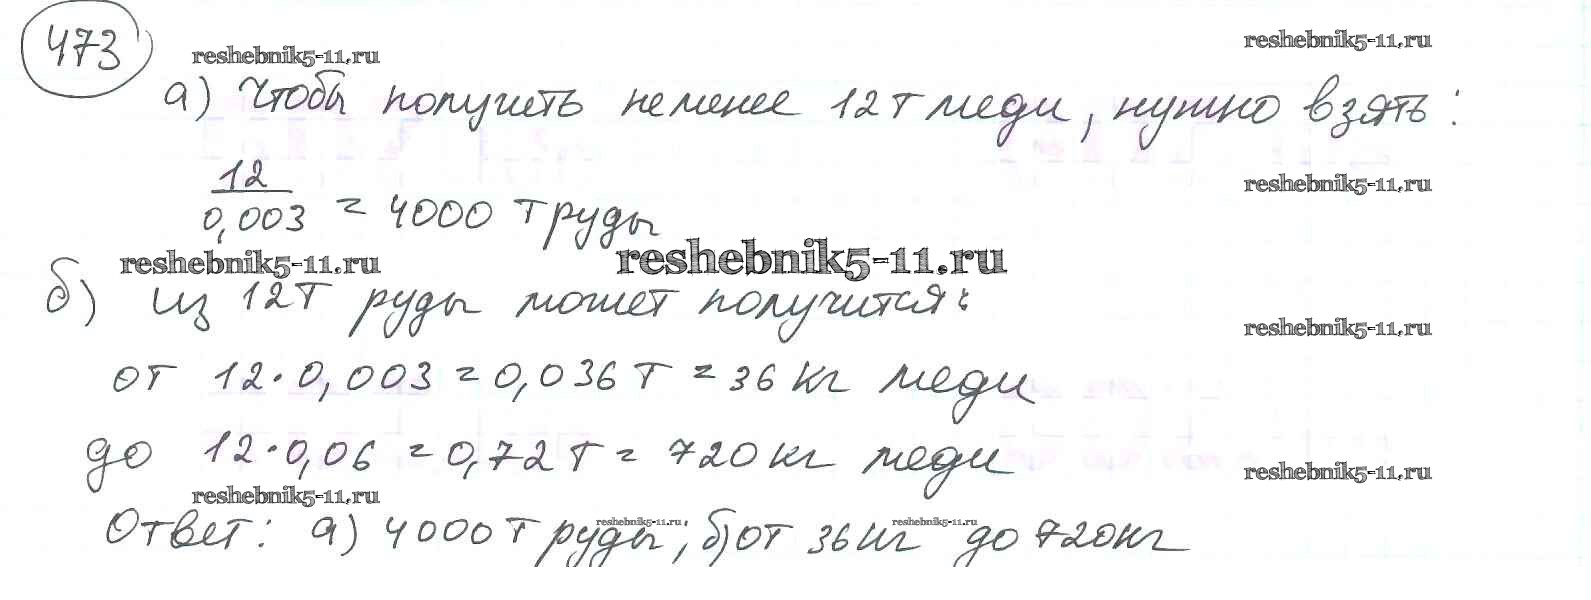 473
reshebnik5-11.ru
reshebnik5-11.ru
а) Чтобы получить не менее 12 т меди, нужно взять:
12
reshebnik5-11.ru
0,003 = 4000 т руды
reshebnik5-11.ru
reshebnik5-11.ru
б) из 12 т руды может получится:
reshebnik5-11.ru
от 12·0,003 = 0,036 т = 36 кг меди
до 12·0,06 = 0,72 т = 720 кг меди
reshebnik5-11.ru
reshebnik5-11.ru
Ответ: а) 4000 т руды; б) от 36 кг до 720 кг
reshebnik5-11.ru
reshebnik5-11.ru